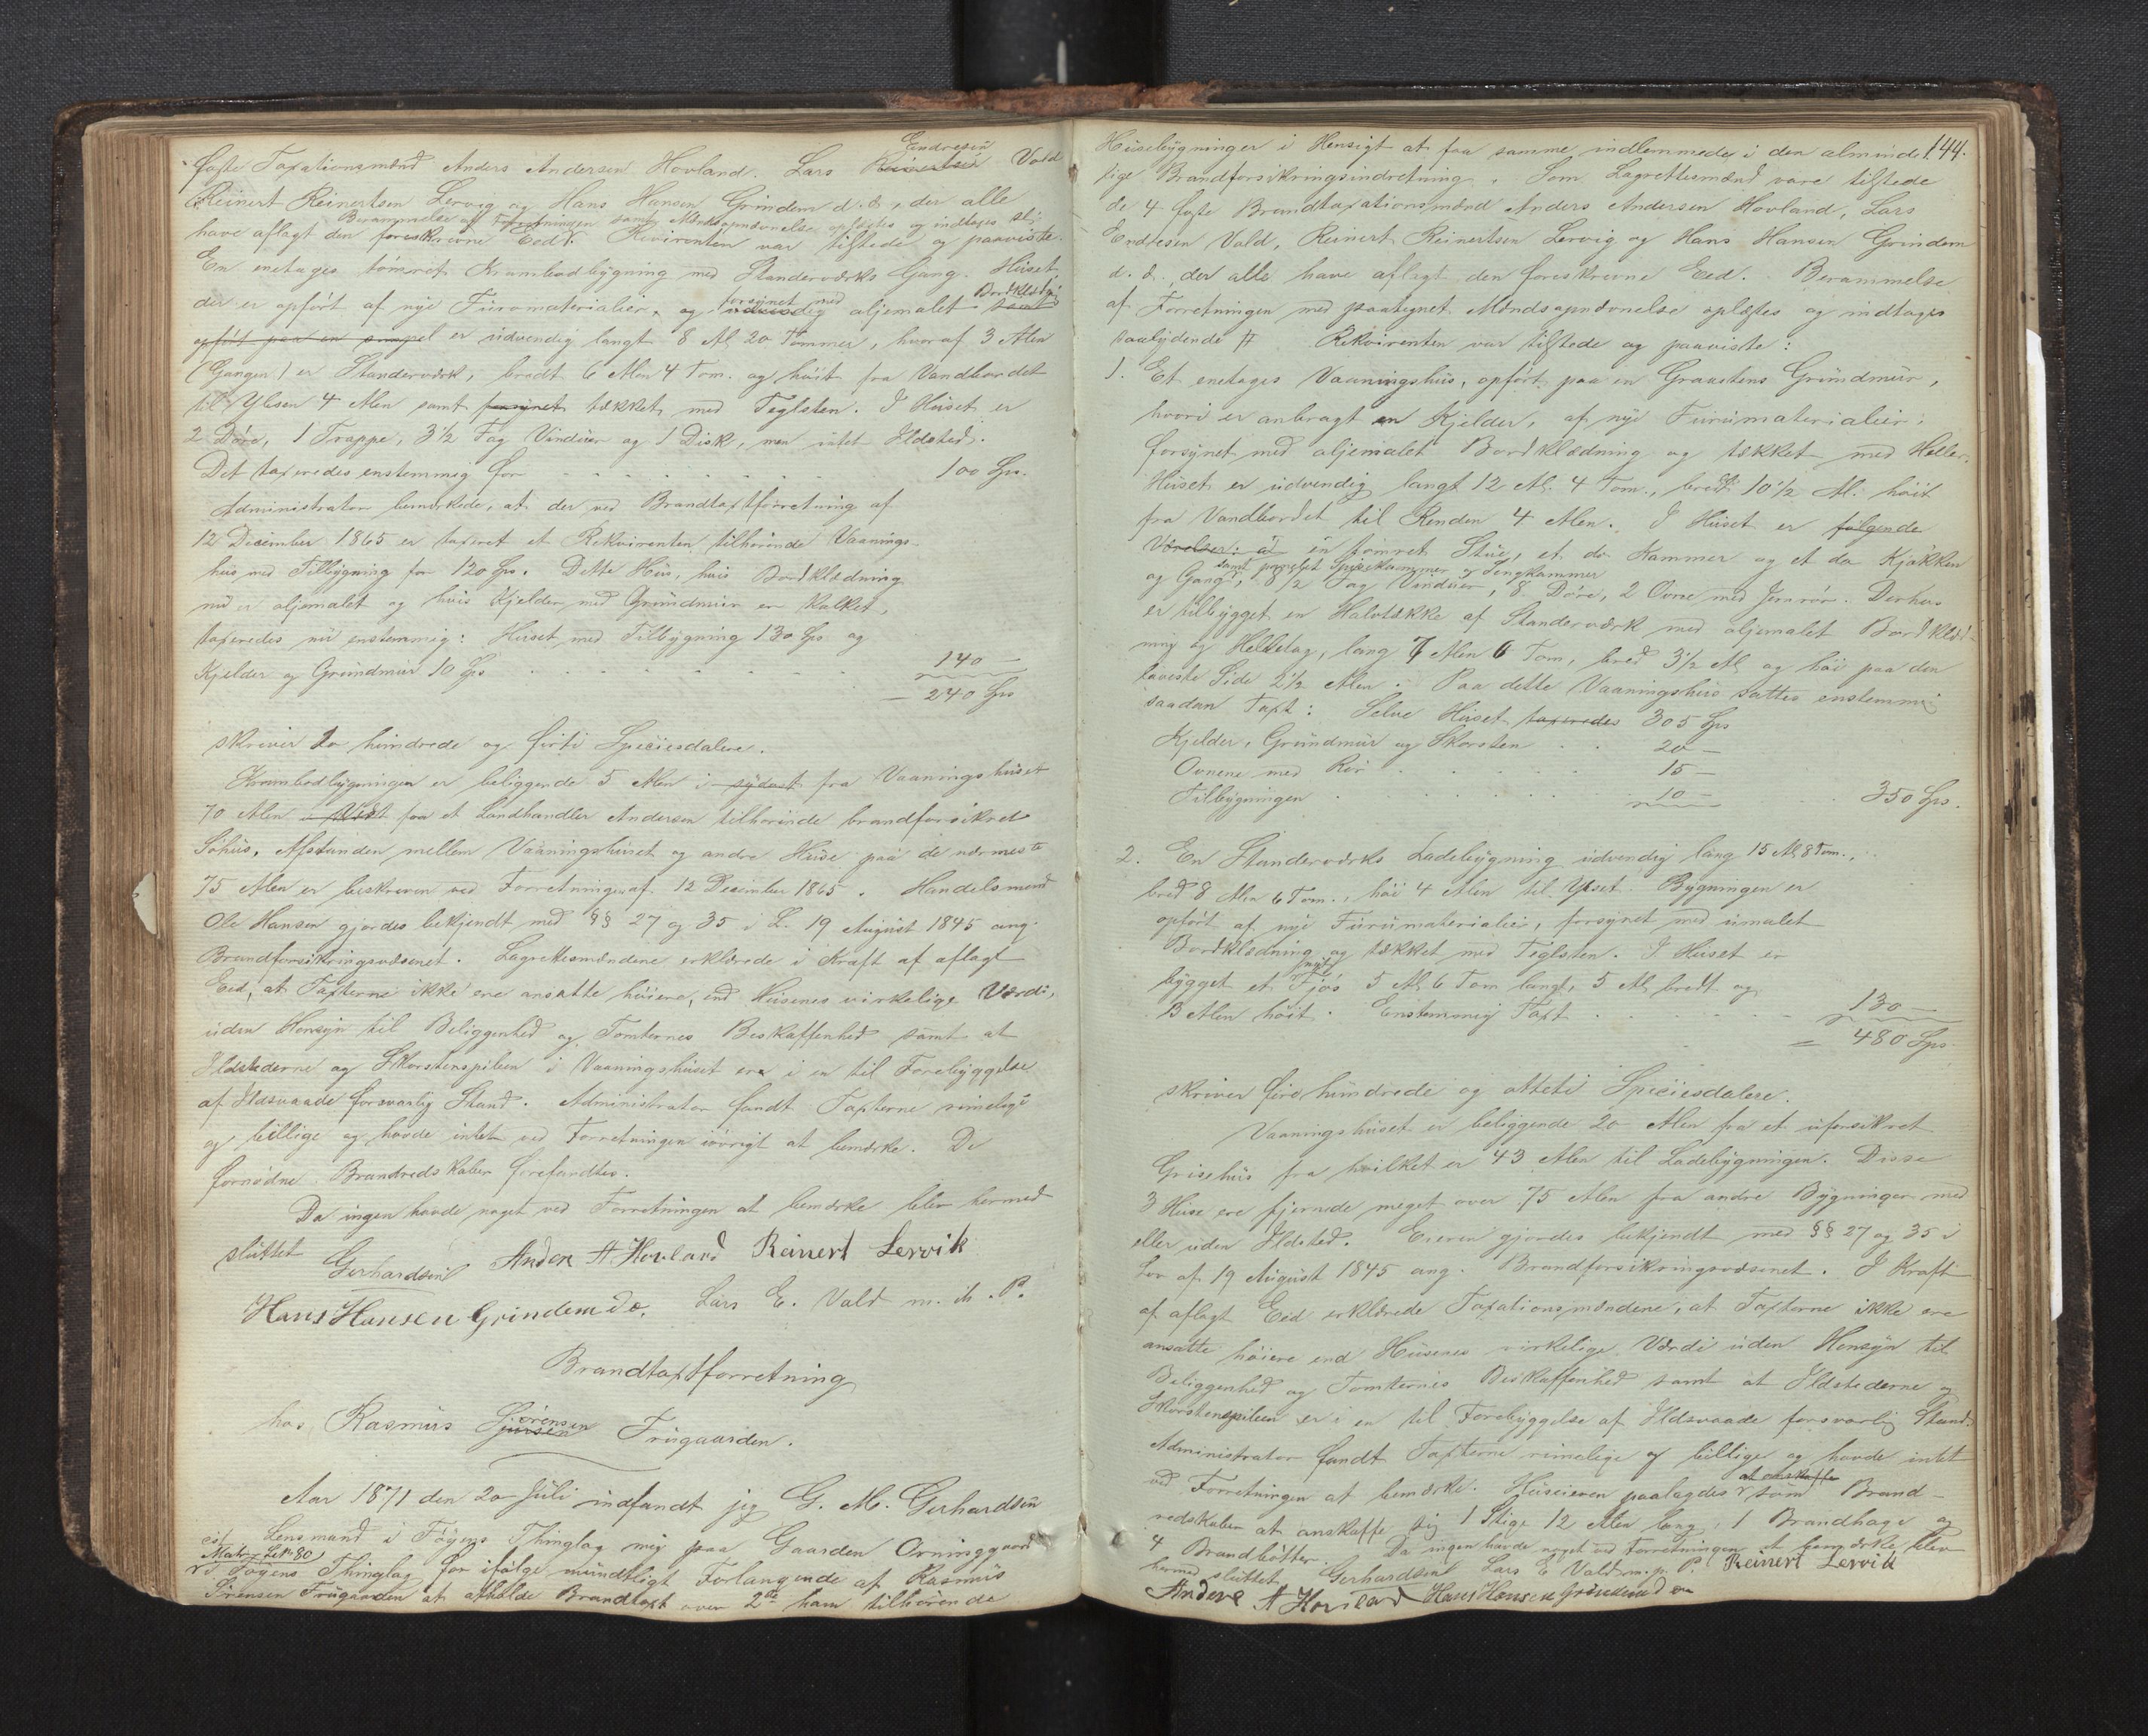 faste Taxationsmænd Anders Andersen Hovland. Lars Reinertsen Endresen Vold
Reinert Reinertsen Lervig og Hans Hansen Grindem d. æ., der alle
Berammelse af Forretningen samt Mændsopnævnelse oplæstes og indtages
have aflagt den foreskrevne Eed. Rekvirenten var tilstede og paaviste.
En enetages tømret Krambodbygning med Standerværks Gang. Huset
der er opført af nye Furumaterialier, og udvendig forsynet med oljemalet Bordklædng samt
opført paa en simpel er udvendig langt 8 Al 20 Tommer, hvoraf 3 Alen
(Gangen) er Standerværk, bredt 6 Alen 4 Tom. og høit fra Vandbordet
til Ylsen 4 Alen samt forsynet tækket med Teglsten. I Huset er
2 Døre, 1 Trappe, 3½ Fag Vinduer og 1 Disk, men intet Ildsted.
Det taxeredes enstemmig for 100 Sps.
Administrator bemærkede, at der ved Brandtaxtforretning af
12 December 1865 er taxeret et Rekvirenten tilhørende Vaanings-
hus med Tilbygning for 120 Sps. Dette Hus, hvis Bordklædning
nu er oljemalet og hvis Kjelder med Grundmur er kalket,
taxeredes nu enstemmig: Huset med Tilbygning 130 Sps og
Kjelder og Grundmur 10 Sps 140 —
— 240 Sps
skriver To hundrede og førti Speciesdalere.
Krambodbygningen er beliggende 5 Alen i sydost fra Vaaningshuset
70 Alen i Vest fra et Landhandler Andersen tilhørende brandforsikret
Søhus. Afstanden mellem Vaaningshuset og andre Huse paa de nærmeste
75 Alen er beskreven ved Forretningen af 12 December 1865. Handelsmand
Ole Hansen gjordes bekjendt med §§ 27 og 35 i L. 19 August 1845 ang.
Brandforsikringsvæsenet. Lagrettesmændene erklærede i Kraft af aflagt
Eed, at Taxterne ikke ere ansatte høiere, end Husenes virkelige Værdi,
uden Hensyn til Beliggenhed og Tomternes Beskaffenhed samt at
Ildstederne og Skorstenspiben i Vaaningshuset ere i en til Forebyggelse
af Ildsvaade forsvarlig Stand. Administrator fandt Taxterne rimelige
og billige og havde intet ved Forretningen iøvrigt at bemærke. De
fornødne Brandredskaber forefandtes.
Da ingen havde noget ved Forretningen at bemærke blev hermed
sluttet Gerhardsen Anders A Hovland Reinert Lervik
Hans Hansen Grindem d æ. Lars E. Vold m. ih. P.
Brandtaxtforretning
hos Rasmus Sjursen Sørensen Frugaarden.
Aar 1871 den 20 Juli indfandt jeg G. M. Gerhardsen
cst Lensmand i Føyens Thinglag mig paa Gaarden Orninggaard
Matr. Lø. 80
i Føyens Thinglag for ifølge mundtligt Forlangende af Rasmus
Sørensen Frugaarden at afholde Brandtaxt over 2de ham tilhørende
144.
Husebygninger i Hensigt at faa samme indlemmede i den alminde-
lige Brandforsikringsindretning. Som Lagrettesmænd vare tilstede
de 4 faste Brandtaxationsmænd Anders Andersen Hovland, Lars
Endresen Vold, Reinert Reinertsen Lervig og Hans Hansen Grindem
d. æ., der alle have aflagt den foreskrevne Eed. Berammelse
af Forretningen med paategnet Mændsopnævnelse oplæstes og indtages
saalydende # Rekvirenten var tilstede og paaviste:
1. Et enetages Vaaningshus, opført paa en Graastens Grundmur,
hvori er anbragt en Kjelder, af nye Furumaterialier,
forsynet med oljemalet Bordklædning og tækket med Heller.
Huset er udvendig langt 12 Al. 4 Tom., bredt 10½ Al. høit
fra Vandbordet til Renden 4 Alen. I Huset er følgende
Værelser: a en tømret Stue, et do Kammer og et do Kjøkken
samt panelet Spisekammer og Sengkammer
og Gang, 8½ Fag Vinduer, 8 Døre, 2 Ovne med Jernrør. Derhos
er tilbygget en Halvtække af Standerværk med oljemalet Bordklæd-
ning og Helletag, lang 7 Alen 6 Tom, bred 3½ Al og høi paa den
laveste Side 2½ Alen. Paa dette Vaaningshus sattes enstemmig
saadan Taxt: Selve Huset taxeredes 305 Sps
Kjelder, Grundmur og Skorsten 20 —
Ovnene med Rør 15 —
Tilbygningen 10 — 350 Sps.
2. En Standerværks Ladebygning udvendig lang 15 Al 8 Tom.,
bred 8 Alen 6 Tom., høi 4 Alen til Ylset. Bygningen er
opført af nye Furumaterialier, forsynet med umalet
Bordklædning og tækket med Teglsten. I Huset er
bygget et nyt Fjøs 5 Al 6 Tom langt, 5 Al bredt og
3 Alen høit. Enstemmig Taxt 130 —
= 480 Sps
skriver fire hundrede og otteti Speciesdalere.
Vaaningshuset er beliggende 20 Alen fra et uforsikret
Grisehus fra hvilket er 43 Alen til Ladebygningen. Disse
3 Huse ere fjernede meget over 75 Alen fra andre Bygninger med
eller uden Ildsted. Eieren gjordes bekjendt med §§ 27 og 35 i
Lov af 19 August 1845 ang. Brandforsikringsvæsenet. I Kraft
af aflagt Eed erklærede Taxationsmændene, at Taxterne ikke ere
ansatte høiere end Husenes virkelige Værdi uden Hensyn til
Beliggenhed og Tomternes Beskaffenhed samt at Ildstederne og
Skorstenspiben er i en til Forebyggelse af Ildsvaade forsvarlig Stand.
Administrator fandt Taxterne rimelige og billige og havde intet
ved Forretningen at bemærke. Huseieren paalagdes at anskaffe som Brand-
redskaber at anskaffe sig 1 Stige 12 Alen lang, 1 Brandhage og
4 Brandbøtter. Da ingen havde noget ved Forretningen at bemærke blev
hermed sluttet Gerhardsen Lars E Vold m. p. P. Reinert Lervik
Anders A Hovland Hans Hansen Grindem d æ